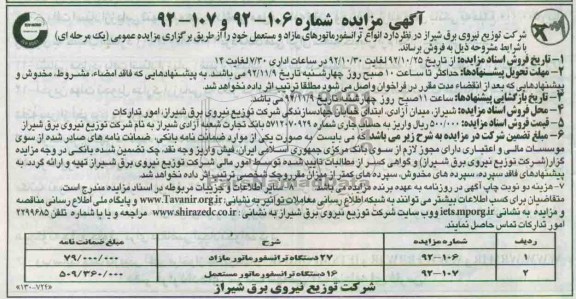 آگهی مزایده شماره ۱۰۶-۹۲ و ۱۰۷-۹۲
شرکت توزیع نیروی برق شیراز در نظر دارد انواع ترانسفورماتورهای مازاد و مستعمل خود را از طریق برگزاری مزایده عمومی (یک مرحله ای)
با شرایط مشروحه ذیل به فروش برساند.
۱- تاریخ فروش اسناد مزایده: از تاریخ ۹۲/۱۰/۲۵ لغایت ۹۲/۱۰/۳۰ در ساعات اداری ۷/۳۰ لغایت ۱۴
۲- مهلت تحویل پیشنهادها: حداکثر تا ساعت ۱۰ صبح روز چهارشنبه تاریخ ۹۲/۱۱/۹ می باشد. به پیشنهادهایی که فاقد امضاء، مشروط، مخدوش و
پیشنهادهایی که بعد از انقضاء مدت مقرر در فراخوان واصل می شود مطلقا ترتیب اثر داده نخواهد شد.
۳- تاریخ بازگشایی پیشنهادها: ساعت ۱۱ صبح روز چهارشنبه تاریخ ۹۲/۱۱/۹ می باشد.
۴- محل فروش اسناد مزایده: شیراز، میدان آزادی، ابتدای خیابان جهادسازندگی شرکت توزیع نیروی برق شیراز، امور تدارکات
۵- قیمت فروش اسناد مزایده: ۵۰۰/۰۰۰ ریال واریز به حساب جاری شماره بانک تجارت شعبه آزادی شیراز به نام شرکت توزیع نیروی برق شیراز
۶- مبلغ تضمین شرکت در مزایده به شرح زیر می باشد: که می بایست به صورت یکی از موارد ضمانت نامه بانکی، ضمانت نامه های صادر شده از سوی
موسسات مالی و اعتباری دارای مجوز لازم از سوی بانک مرکزی جمهوری اسلامی ایران، فیش واریز وجه نقد، چک تضمین شده بانکی در وجه مزایده
گزار (شرکت توزیع نیروی برق شیراز) و گواهی کسر از مطالبات تایید شده توسط امور مالی شرکت توزیع نیروی برق شیراز تهیه و ارائه گردد. به
پیشنهادهای فاقد سپرده، سپرده های مخدوش، سپرده های کمتر از میزان مقرر، چک شخصی ترتیب اثر داده نخواهد شد.
۷- هزینه دو نوبت چاپ آگهی در روزنامه به عهده برنده مزایده می باشد. سایر اطلاعات و جزییات مربوطه در اسناد مزایده مندرج است
متقاضیان برای کسب اطلاعات بیشتر می توانند به شبکه اطلاع رسانی معاملات توانیر به نشانی www.Tavanir.org.ir و پایگاه ملی اطلاع رسانی مناقصه
و مزایده به نشانی iets.mporg.ir و وب سایت شرکت توزیع نیروی برق شیراز به نشانی: www.shirazedc.co.ir مراجعه و یا با شماره تلفن ۲۲۹۹۶۸۵
امور تدارکات تماس حاصل نمایند.
ردیف شماره مزایده شرح مبلغ ضمانت نامه
۱ ۹۲-۱۰۶ ۲۷ دستگاه ترانسفورماتور مازاد ۷۹/۰۰۰/۰۰۰
۲ ۹۲-۱۰۷ ۱۶ دستگاه ترانسفورماتور مستعمل ۵۰۹/۳۶۰/۰۰۰
شرکت توزیع نیروی برق شیراز